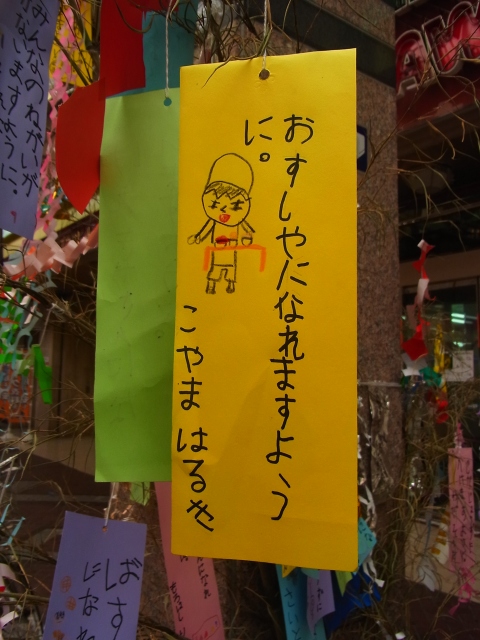 おすしやになれますよう
に。
こやま はるや
みんなのねがいが
かないますように、
ばす
になれ